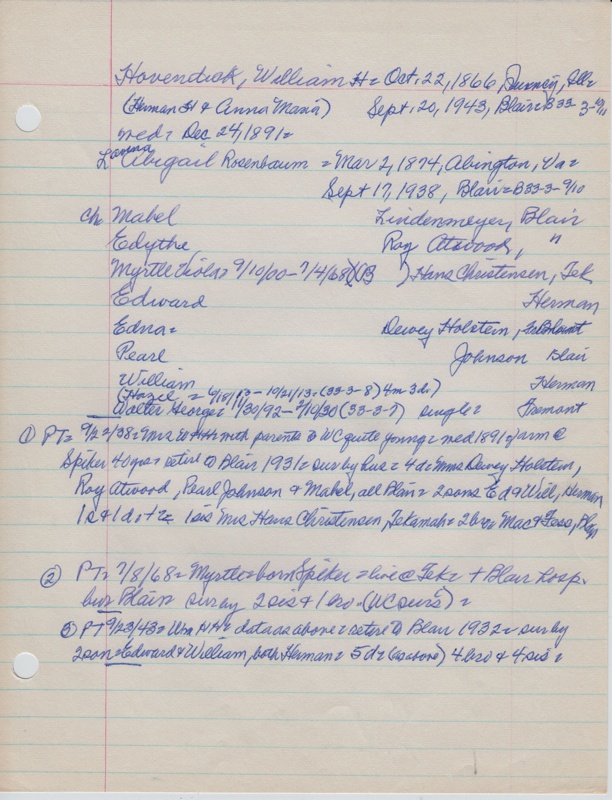 Hovendick, William H = Oct. 22, 1866, Quincy, Ill =
(Herman H & Anna Maria) Sept. 20, 1943, Blair = B33-3-9/11
med = Dec 24, 1891 =
Lavina Abigail Rosenbaum = Mar 2, 1874, Abington, Va =
Sept 17, 1938, Blair = B33-3-9/10
Ch Mabel Lindenmeyer, Blair
Edythe, Roy Atwood, "
Myrtle Viola = 9/10/00 - 7/4/68 (B ) Hans Christensen, Tek
Edward Herman
Edna = Dewey Holstein, Blair
Pearl Johnson Blair
William Herman
(Hazel = 6/18/13 - 10/21/13 = (33-3-8) 4m 3d =)
Walter George = 11/30/92 - 9/10/30 (33-3-7) single = Fremont
① PT = 9/22/38 = Mrs W HH = with parents to WC quite young = med 1891 = farm @
Spiker 40 yrs = retire to Blair 1931 = sur by hus = 4 d = Mmes Dewey Holstein,
Roy Atwood, Pearl Johnson & Mabel, all Blair = 2 sons Ed & Will, Herman
1s & 1d = 1 sis Mrs Hans Christensen, Tekamah = 2 bro = Mac & Tess,
② PT = 7/8/68 = Myrtle = born Spiker = live @ Tek = + Blair hosp.
bur Blair = sur by 2 sis & 1 bro. (WC surs) =
③ PT 9/23/43 = Wm HH = data as above = retire to Blair 1932 = sur by
2 son = Edward & William, both Herman = 5 d = (as above) 4 bro & 4 sis =